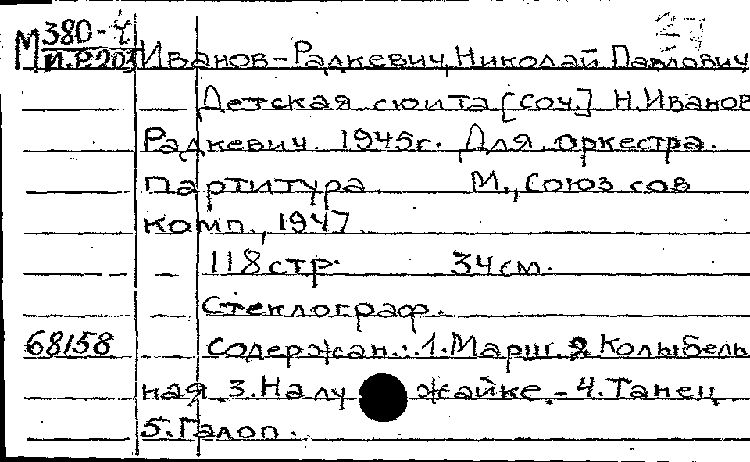 М 380-4 27
И.Р203 Иванов-Радкевич, Николай Павлович
Детская сюита [соч.] Н.Иванов
Радкевич 1945г. Для оркестра.
Партитура. М., Союз сов
комп., 1947
118 стр. 34 см.
Стеклограф.
68158 Содержан.: 1.Марш. 2 Колыбель
ная 3.На лужайке.- 4.Танец
5.Галоп.